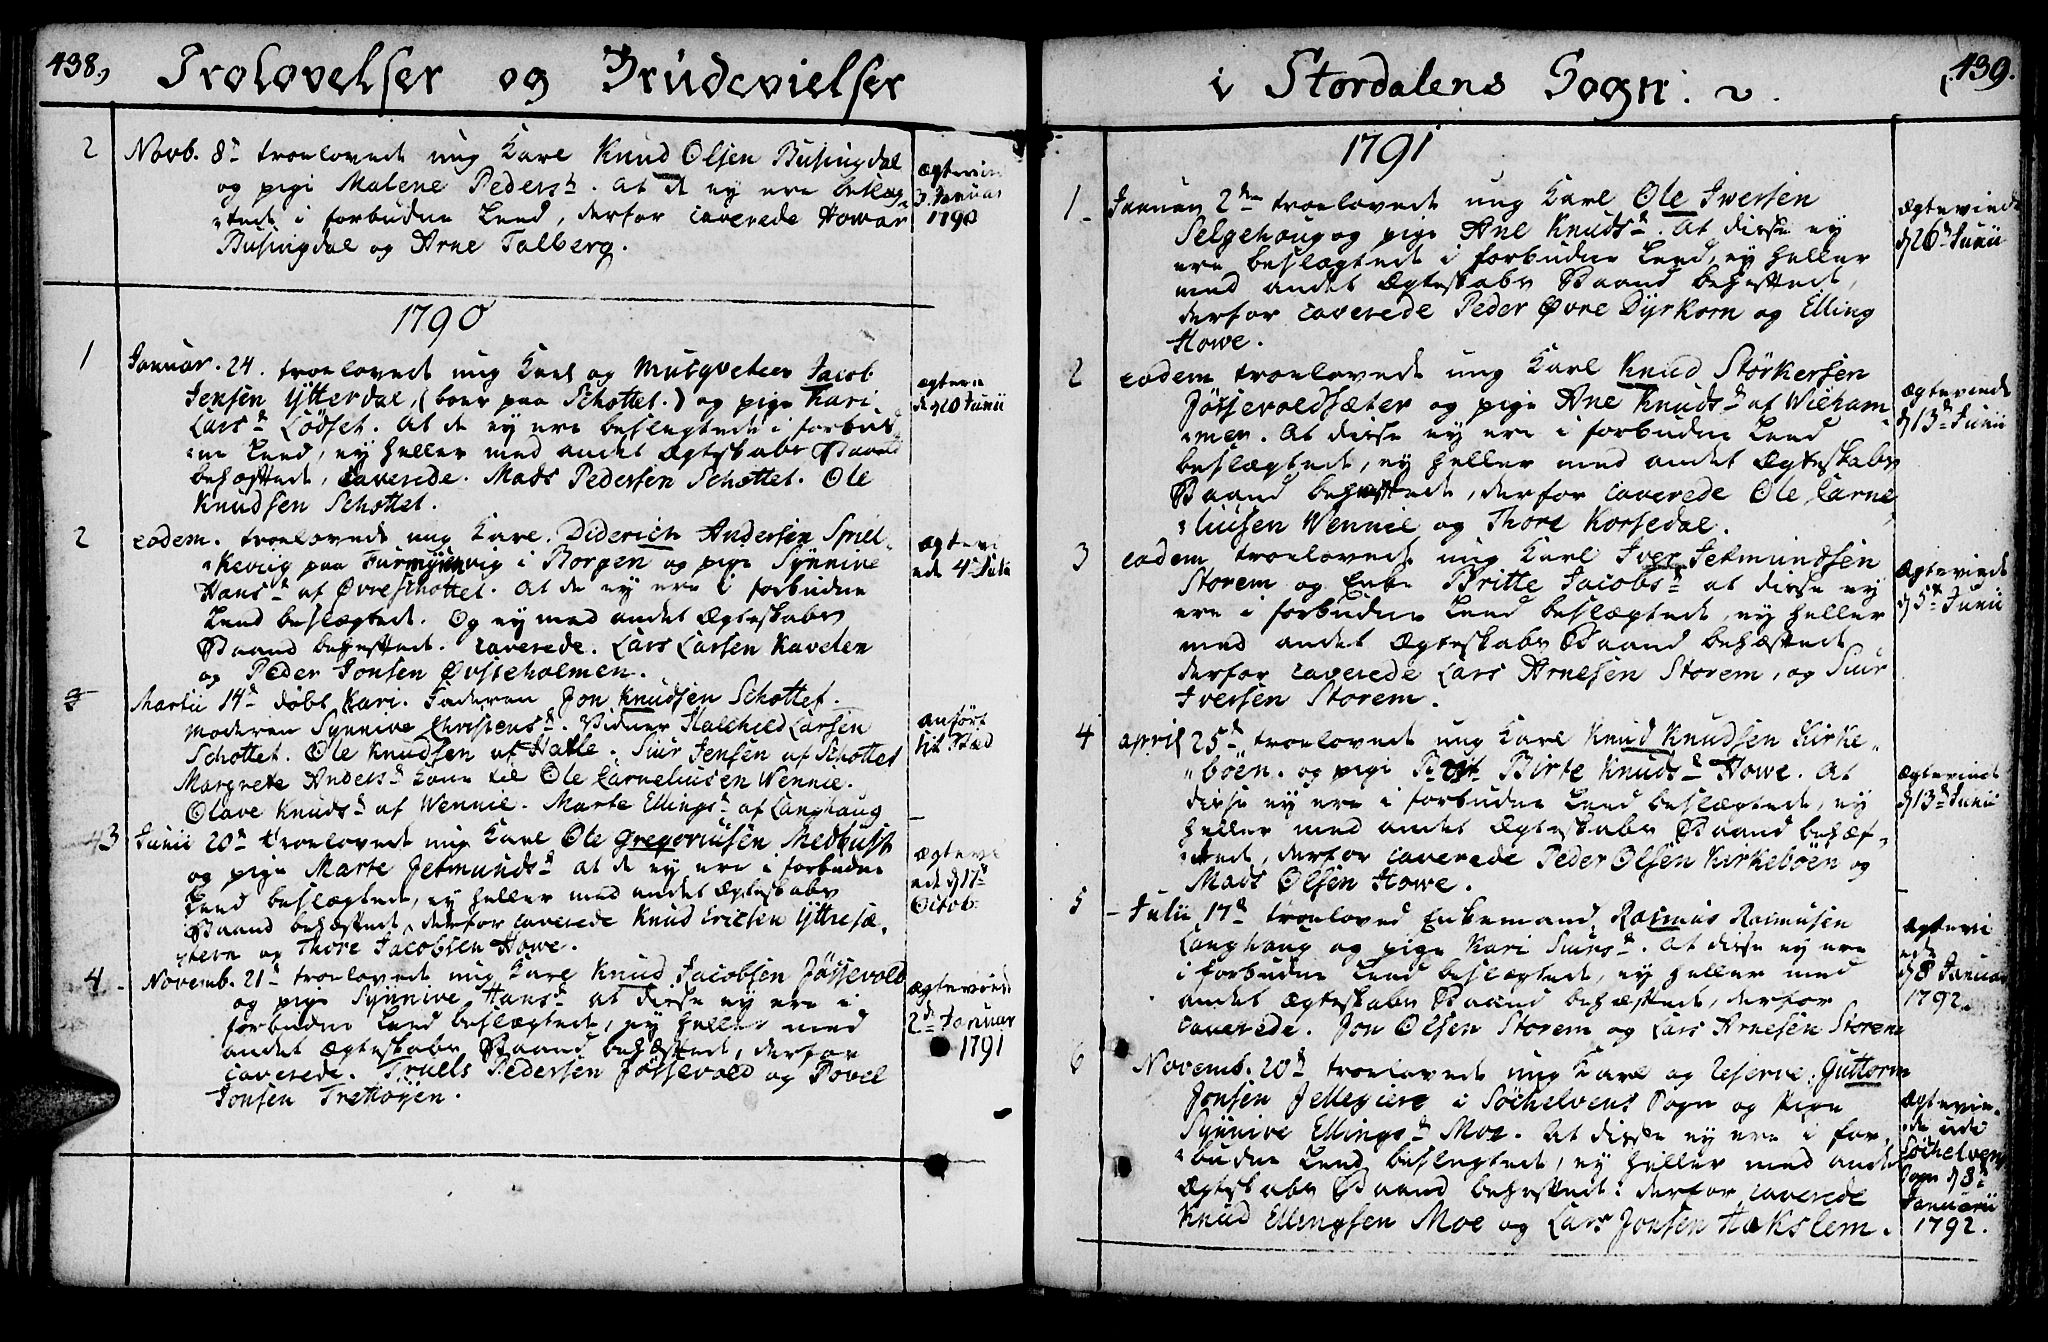 438, Trolovelser og Brudevielser
2 Novb. 8de troelovede ung Karl Knud Olsen Busingdal
og pige Malene Pedersd. at de ey ere beslæg-
tede i forbudne Leed, derfor caverede Howar
Busingdal og Arne Talberg.
ægtevied
3 Januar
1790
1790
1 Januar. 24. troelovede ung Karl og Musqveteer Jacob
Jensen Ytterdal, (boer paa Schottet.) og pige Kari
Larsd. Lödset. At de ey ere beslegtede i forbud-
ne Leed, ey heller med andet Ægteskabs Baand
behæftede, caverede. Mads Pedersen Schottet. Ole
Knudsen Schottet.
ægtevi
d. 20 Junii
2 eodem. troelovede ung Karl Diderich Andersen Spiel-
kevig paa i Borgen og pige Synnive
Hansd. af Øvre Schottet. At de ey ere i forbudne
Leed beslægtede. Og ey med andet Ægteskabs
Baand behæftede. caverede. Lars Larsen Kavelen
og Peder Jonsen Øvsteholmen.
ægtevi
ede 4de Julii
3 Martii 14de döbt Kari. Faderen Jon Knudsen Schottet.
Moderen Synnive Christensd. Vidner Halchild Larsen
Schottet. Ole Knudsen af Hatle. Siur Jensen af Schottet
Margrete Andersd. Kone til Ole Karneliusen Wennie.
Olave Knudsd. af Wennie. Marte Ellingsd. af Langhaug
anfört
sit Stæd
43 Junii 20de troelovede ung Karl Ole Gregoriusen Medhust
og pige Marte Jetmundsd. at de ey ere i forbudne
Leed beslægtede, ey heller med andet Ægteskabs
Baand behæftede, derfor caverede Knud Ericsen Yttresæ-
tern og Thore Jacobsen Howe.
ægtevi
ede d. 17de
Octob.
4 Novemb. 21de troelovede ung Karl Knud Jacobsen Jössevold
og pige Synnive Hansd. at disse ey ere i
forbudne Leed beslægtede, ey heller med
andet Ægteskabs Baand behæftede, derfor
caverede. Truels Pedersen Jössevold og Povel
Jonsen Trehögen.
ægteviede
2de Januar
1791
i Stordalens Sogn. 439.
1791
1 Januar 2den troelovede ung Karl Ole Iwersen
Selgehaug og pige Ane Knudsd. At disse ey
ere beslægtede i forbudne Leed, ey heller
med andet Ægteskabs Baand behæftede,
derfor caverede Peder Øvre Dyrkorn og Elling
Howe.
Ægteviede
d 26de Junii
2 eodem troelovede ung Karl Knud Störkersen
Jössevoldsæter og pige Ane Knudsd. af Wieham-
mer. At disse ey ere i forbudne Leed
beslægtede, ey heller med andet Ægteskabs
Baand behæftede, derfor caverede Ole Carne-
liusen Wennie og Thore Korsedal.
Ægteviede
d 13de Junii
3 eodem troelovede ung Karl Iver Jetmundsen
Storem og Enke Britte Jacobsd. at disse ey
ere i forbudne Leed beslægtede, ey heller
med andet Ægteskabs Baand behæftede
derfor caverede Lars Arnesen Storem, og Siur
Iversen Storem.
Ægteviede
d 5te Junii
4 april 25de troelovede ung Karl Knud Knudsen Kirke-
böen. og pige Birte Knudsd. Howe. At
disse ey ere i forbudne Leed beslægtede, ey
heller med andet Ægteskabs Baand behæf-
tede, derfor caverede Peder Olsen Kirkeböen og
Mads Olsen Howe.
Ægteviede
d 13de Junii
5 Julii 17de troeloved Enkemand, Rasmus Rasmusen
Langhaug og pige Kari Siursd. At disse ey ere
i forbudne Leed beslægtede, ey heller med
andet Ægteskabs Baand behæftede, derfor
caverede. Jon Olsen Storem og Lars Arnesen Storem
Ægtevi
ede
d 8 Januar
1792.
6 Novemb. 20de troelovede ung Karl og reserve. Guttorm
Jonsen Jellegiere i Söchelvens Sogn og Pige
Synnive Ellingsd. Moe. At disse ey ere i for-
budne Leed beslegtede, ey heller med andet
Ægteskabs Baand behæftede. derfor caverede
Knud Ellingsen Moe og Lars Jonsen Hakslem.
Ægtevie-
de udi
Söchelvens
Sogn d 8de
Januarii
1792.